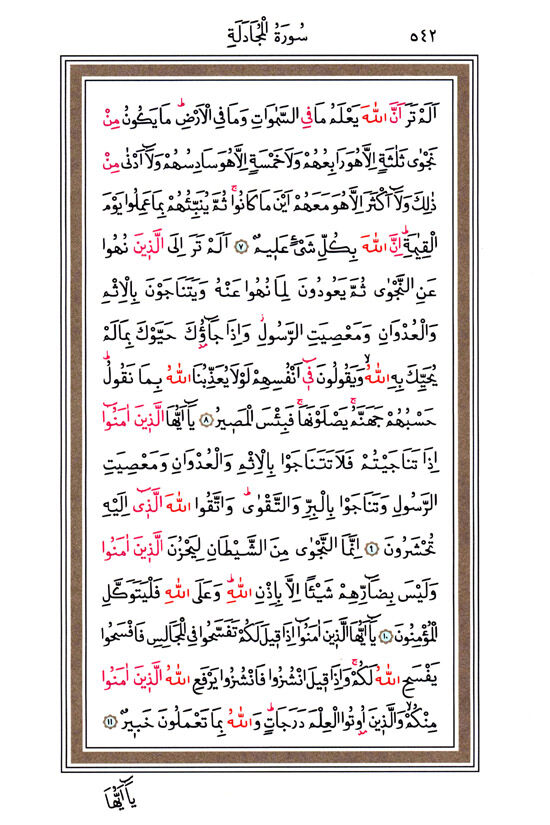 ٥٤٢
سُورَةُ الْمُجَادَلَةِ
اَلَمْ تَرَ اَنَّ اللّٰهَ يَعْلَمُ مَا فِي السَّمٰوَاتِ وَمَا فِي الْاَرْضِۜ مَا يَكُونُ مِنْ
نَجْوٰى ثَلٰثَةٍ اِلَّا هُوَ رَابِعُهُمْ وَلَا خَمْسَةٍ اِلَّا هُوَ سَادِسُهُمْ وَلَٓا اَدْنٰى مِنْ
ذٰلِكَ وَلَٓا اَكْثَرَ اِلَّا هُوَ مَعَهُمْ اَيْنَ مَا كَانُواۚ ثُمَّ يُنَبِّئُهُمْ بِمَا عَمِلُوا يَوْمَ
الْقِيٰمَةِۜ اِنَّ اللّٰهَ بِكُلِّ شَيْءٍ عَلِيمٌ ﴿٧﴾ اَلَمْ تَرَ اِلَى الَّذِينَ نُهُوا
عَنِ النَّجْوٰى ثُمَّ يَعُودُونَ لِمَا نُهُوا عَنْهُ وَيَتَنَاجَوْنَ بِالْاِثْمِ
وَالْعُدْوَانِ وَمَعْصِيَتِ الرَّسُولِۘ وَاِذَا جَٓاؤُ۫كَ حَيَّوْكَ بِمَا لَمْ
يُحَيِّكَ بِهِ اللّٰهُۙ وَيَقُولُونَ فِٓي اَنْفُسِهِمْ لَوْلَا يُعَذِّبُنَا اللّٰهُ بِمَا نَقُولُۜ
حَسْبُهُمْ جَهَنَّمُۚ يَصْلَوْنَهَاۚ فَبِئْسَ الْمَصِيرُ ﴿٨﴾ يَٓا اَيُّهَا الَّذِينَ اٰمَنُٓوا
اِذَا تَنَاجَيْتُمْ فَلَا تَتَنَاجَوْا بِالْاِثْمِ وَالْعُدْوَانِ وَمَعْصِيَتِ
الرَّسُولِ وَتَنَاجَوْا بِالْبِرِّ وَالتَّقْوٰىۜ وَاتَّقُوا اللّٰهَ الَّذِٓي اِلَيْهِ
تُحْشَرُونَ ﴿٩﴾ اِنَّمَا النَّجْوٰى مِنَ الشَّيْطَانِ لِيَحْزُنَ الَّذِينَ اٰمَنُوا
وَلَيْسَ بِضَٓارِّهِمْ شَيْـًٔا اِلَّا بِاِذْنِ اللّٰهِۜ وَعَلَى اللّٰهِ فَلْيَتَوَكَّلِ
الْمُؤْمِنُونَ ﴿١٠﴾ يَٓا اَيُّهَا الَّذِينَ اٰمَنُٓوا اِذَا قِيلَ لَكُمْ تَفَسَّحُوا فِي الْمَجَالِسِ فَافْسَحُوا
يَفْسَحِ اللّٰهُ لَكُمْۚ وَاِذَا قِيلَ انْشُزُوا فَانْشُزُوا يَرْفَعِ اللّٰهُ الَّذِينَ اٰمَنُوا
مِنْكُمْۙ وَالَّذِينَ اُو۫تُوا الْعِلْمَ دَرَجَاتٍۜ وَاللّٰهُ بِمَا تَعْمَلُونَ خَبِيرٌ ﴿١١﴾
يَٓا اَيُّهَا